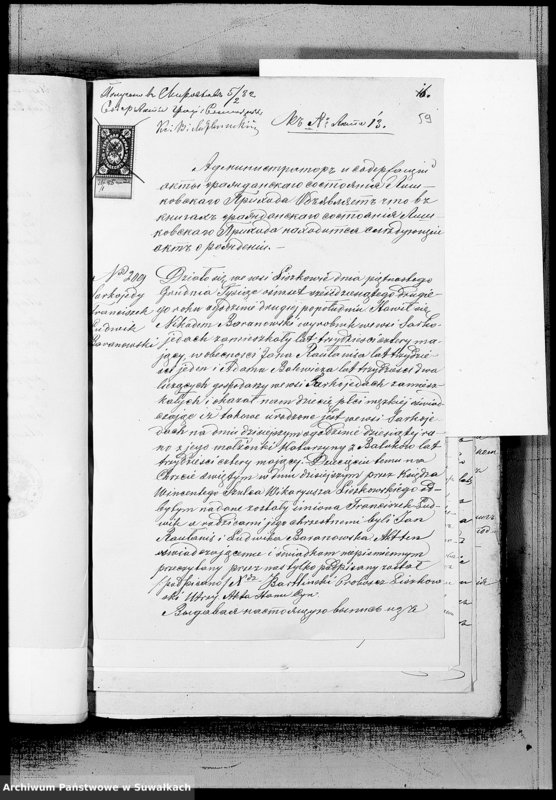 16.
59
Къ № Акта 13.
Администраторъ и содержащій
акты гражданскаго состоянія Лиш-
ковскаго Прихода Объявляетъ что въ
книгахъ гражданскаго состоянія Лиш-
ковскаго Прихода находится слѣдующій
актъ о рожденіи. —
Działo się we wsi Liszkowie dnia piętnastego
Grudnia Tysiąc ośmset sześćdziesiątego drugie-
go roku o godzinie drugiej popołudniu Stawił się
Nikodem Baranowski wyrobnik we wsi Sarko-
jedach zamieszkały lat trzydzieści cztery ma-
jący, w obecności Jana Rautania lat trzydzie-
ści jeden i Adama lat trzydzieści dwa
liczących gospodarzy we wsi Sarkojedach zamiesz-
kałych i okazał nam dziecię płci męzkiej oświad-
czając iż takowe urodzone jest we wsi Sarkoje-
dach na dniu dzisiejszym o godzinie dziesiątej ra-
no z jego małżonki Katarzyny z lat
trzydzieści cztery mającej. Dziecięciu temu na
Chrzcie świętym w dniu dzisiejszym przez Księdza
Wincentego Szulca Wikaryusza Liszkowskiego od-
bytym nadane zostały imiona Franciszek Lud-
wik a rodzicami jego chrzestnemi byli Jan
Rautanis i Ludwika Baranowska Akt ten
oświadczającemu i świadkom niepiśmiennym
przeczytany przez nas tylko podpisany został
(podpisano) Proboszcz Liszkow-
ski Utrzy. Akta Stanu Cyw.
Выдавая настоящую выпись изъ
Sarkojedy
Franciszek
Ludwik
Baranowski
Archiwum Państwowe w Suwałkach